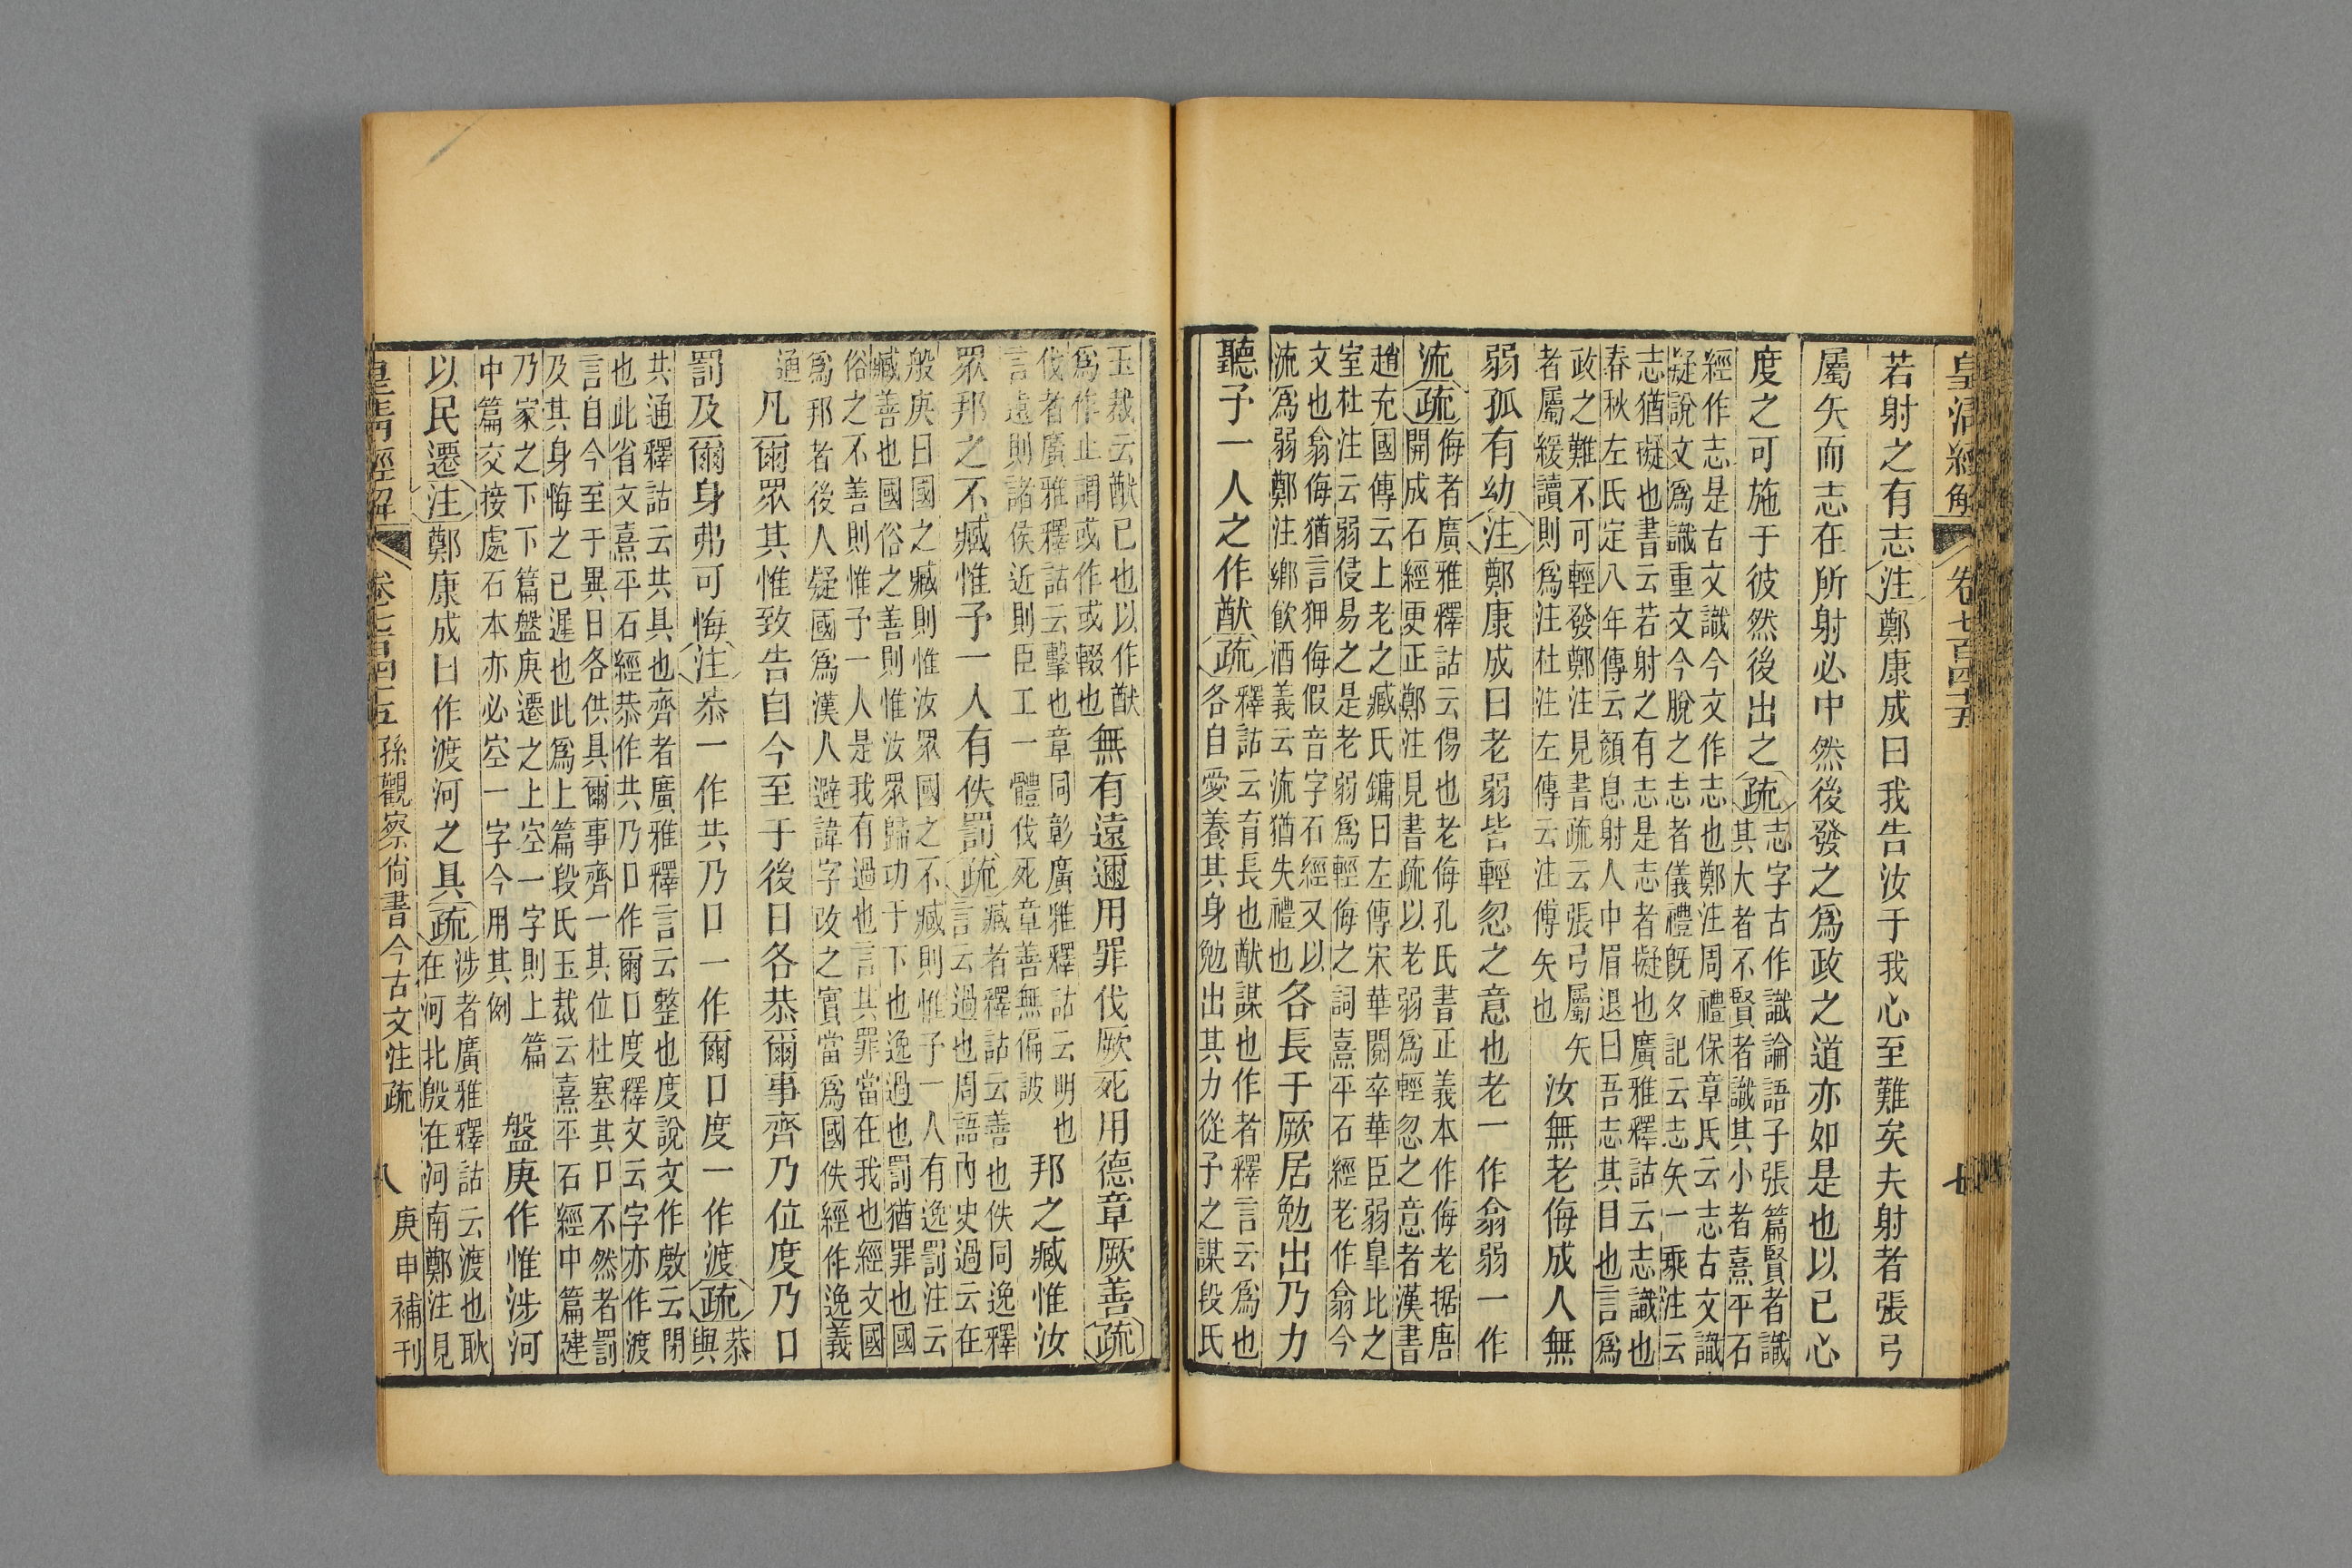 皇清經解 卷七百四十五 七
若射之有志注鄭康成曰我告汝于我心至難矣夫射者張弓
屬矢而志在所射必中然後發之爲政之道亦如是也以己心
度之可施于彼然後出之疏志字古作識論語子張篇賢者識
其大者不賢者識其小者熹平石
經作志是古文識今文作志也鄭注周禮保章氏云志古文識
疑說文爲識重文今脫之志者儀禮旣夕記云志矢一乘注云
志猶擬也書云若射之有志是志者擬也廣雅釋詁云志識也
春秋左氏定八年傳云顏息射人中眉退曰吾志其目也言爲
政之難不可輕發鄭注見書疏云張弓屬矢
者屬緩讀則爲注杜注左傳云注傅矢也
汝無老侮成人無
弱孤有幼注鄭康成曰老弱皆輕忽之意也老一作翕弱一作
流疏侮者廣雅釋詁云傷也老侮孔氏書正義本作侮老据唐
開成石經更正鄭注見書疏以老弱爲輕忽之意者漢書
趙充國傳云上老之臧氏鏞曰左傳宋華閱卒華臣弱皐比之
室杜注云弱侵易之是老弱爲輕侮之詞熹平石經老作翕今
文也翕侮猶言狎侮假音字石經又以
流爲弱鄭注鄉飲酒義云流猶失禮也
各長于厥居勉出乃力
聽予一人之作猷疏釋詁云育長也猷謀也作者釋言云爲也
各自愛養其身勉出其力從予之謀段氏
玉裁云猷已也以作猷
爲作止謂或作或輟也
無有遠邇用罪伐厥死用德章厥善疏
伐者廣雅釋詁云擊也章同彰廣雅釋詁云明也
言遠則諸侯近則臣工一體伐死章善無偏詖
邦之臧惟汝
眾邦之不臧惟予一人有佚罰疏臧者釋詁云善也佚同逸釋
言云過也周語內史過云在
般庚曰國之臧則惟汝眾國之不臧則惟予一人有逸罰注云
臧善也國俗之善則惟汝眾歸功于下也逸過也罰猶罪也國
俗之不善則惟予一人是我有過也言其罪當在我也經文國
爲邦者後人疑國爲漢人避諱字改之實當爲國佚經作逸義
通
凡爾眾其惟致告自今至于後日各恭爾事齊乃位度乃口
罰及爾身弗可悔注恭一作共乃口一作爾口度一作渡疏恭
與
共通釋詁云共具也齊者廣雅釋言云整也度說文作敷云閉
也此省文熹平石經恭作共乃口作爾口度釋文云字亦作渡
言自今至于異日各供具爾事齊一其位杜塞其口不然者罰
及其身悔之已遲也此爲上篇段氏玉裁云熹平石經中篇建
乃家之下下篇盤庚遷之上空一字則上篇
中篇交接處石本亦必空一字今用其例
盤庚作惟涉河
以民遷注鄭康成曰作渡河之具疏涉者廣雅釋詁云渡也耿
在河北殷在河南鄭注見
皇清經解 卷七百四十五 孫觀察尙書今古文注疏 八 庚申補刊